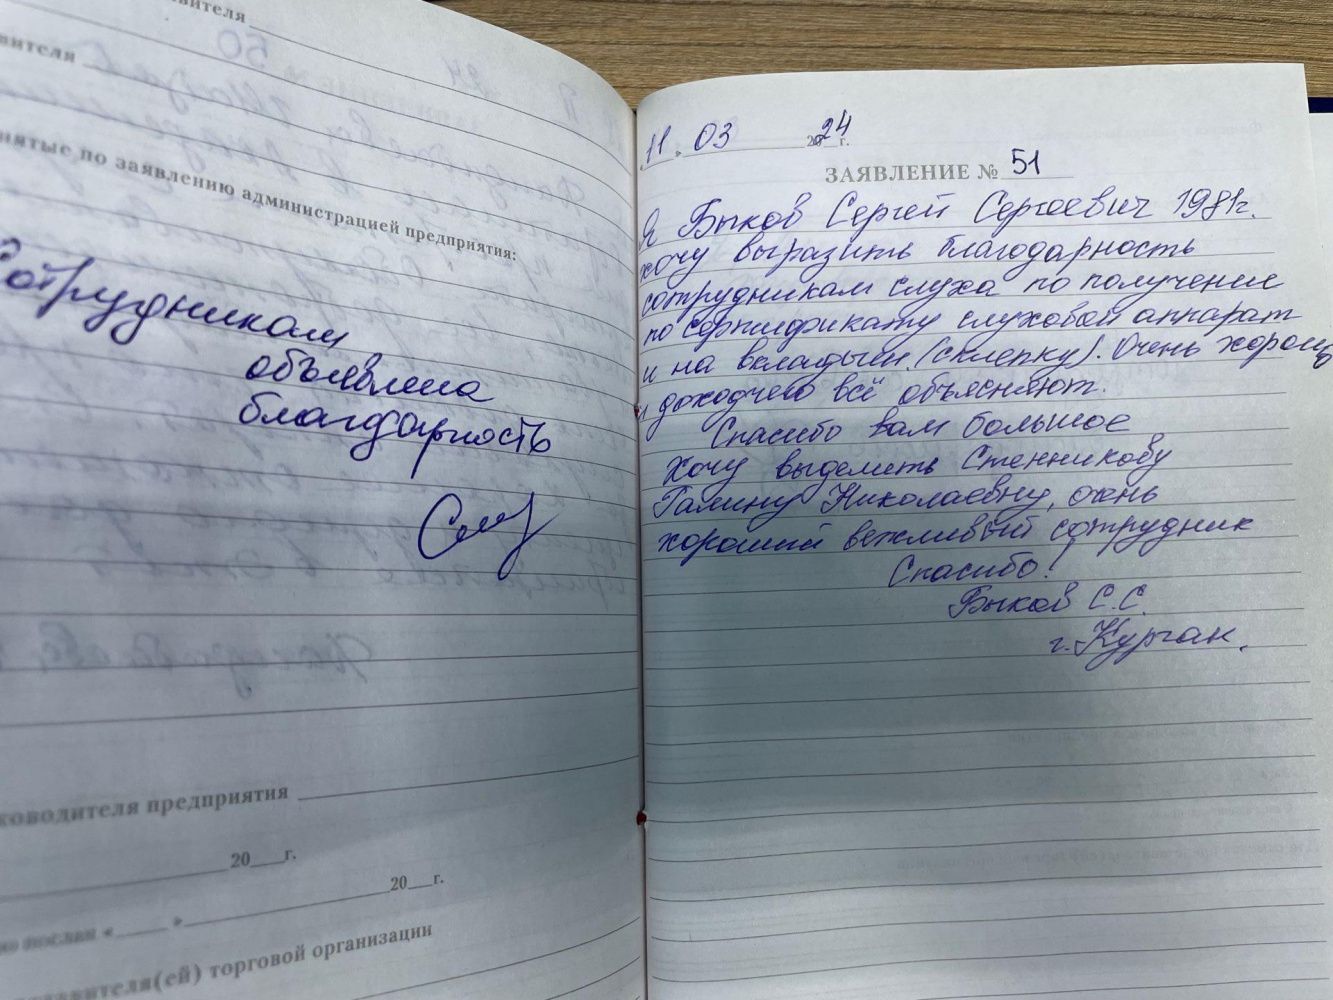 вителя
вителя
нятые по заявлению администрацией предприятия:
Сотрудникам
объявлена
благодарность
ководителя предприятия
20 г.
20 г.
но послан « »
тавителя(ей) торговой организации
«11» 03 2024 г.
ЗАЯВЛЕНИЕ № 51
Я Быков Сергей Сергеевич 1981г.
хочу выразить благодарность
сотрудникам слуха по получении
по сертификату слуховой аппарат
и на вкладыши (слепку). Очень хорошо
и доходчего всё объясняют.
Спасибо вам большое
Хочу выделить Стенникову
Галину Николаевну, очень
хороший вежливый сотрудник
Спасибо!
Быков С.С.
г. Курган.